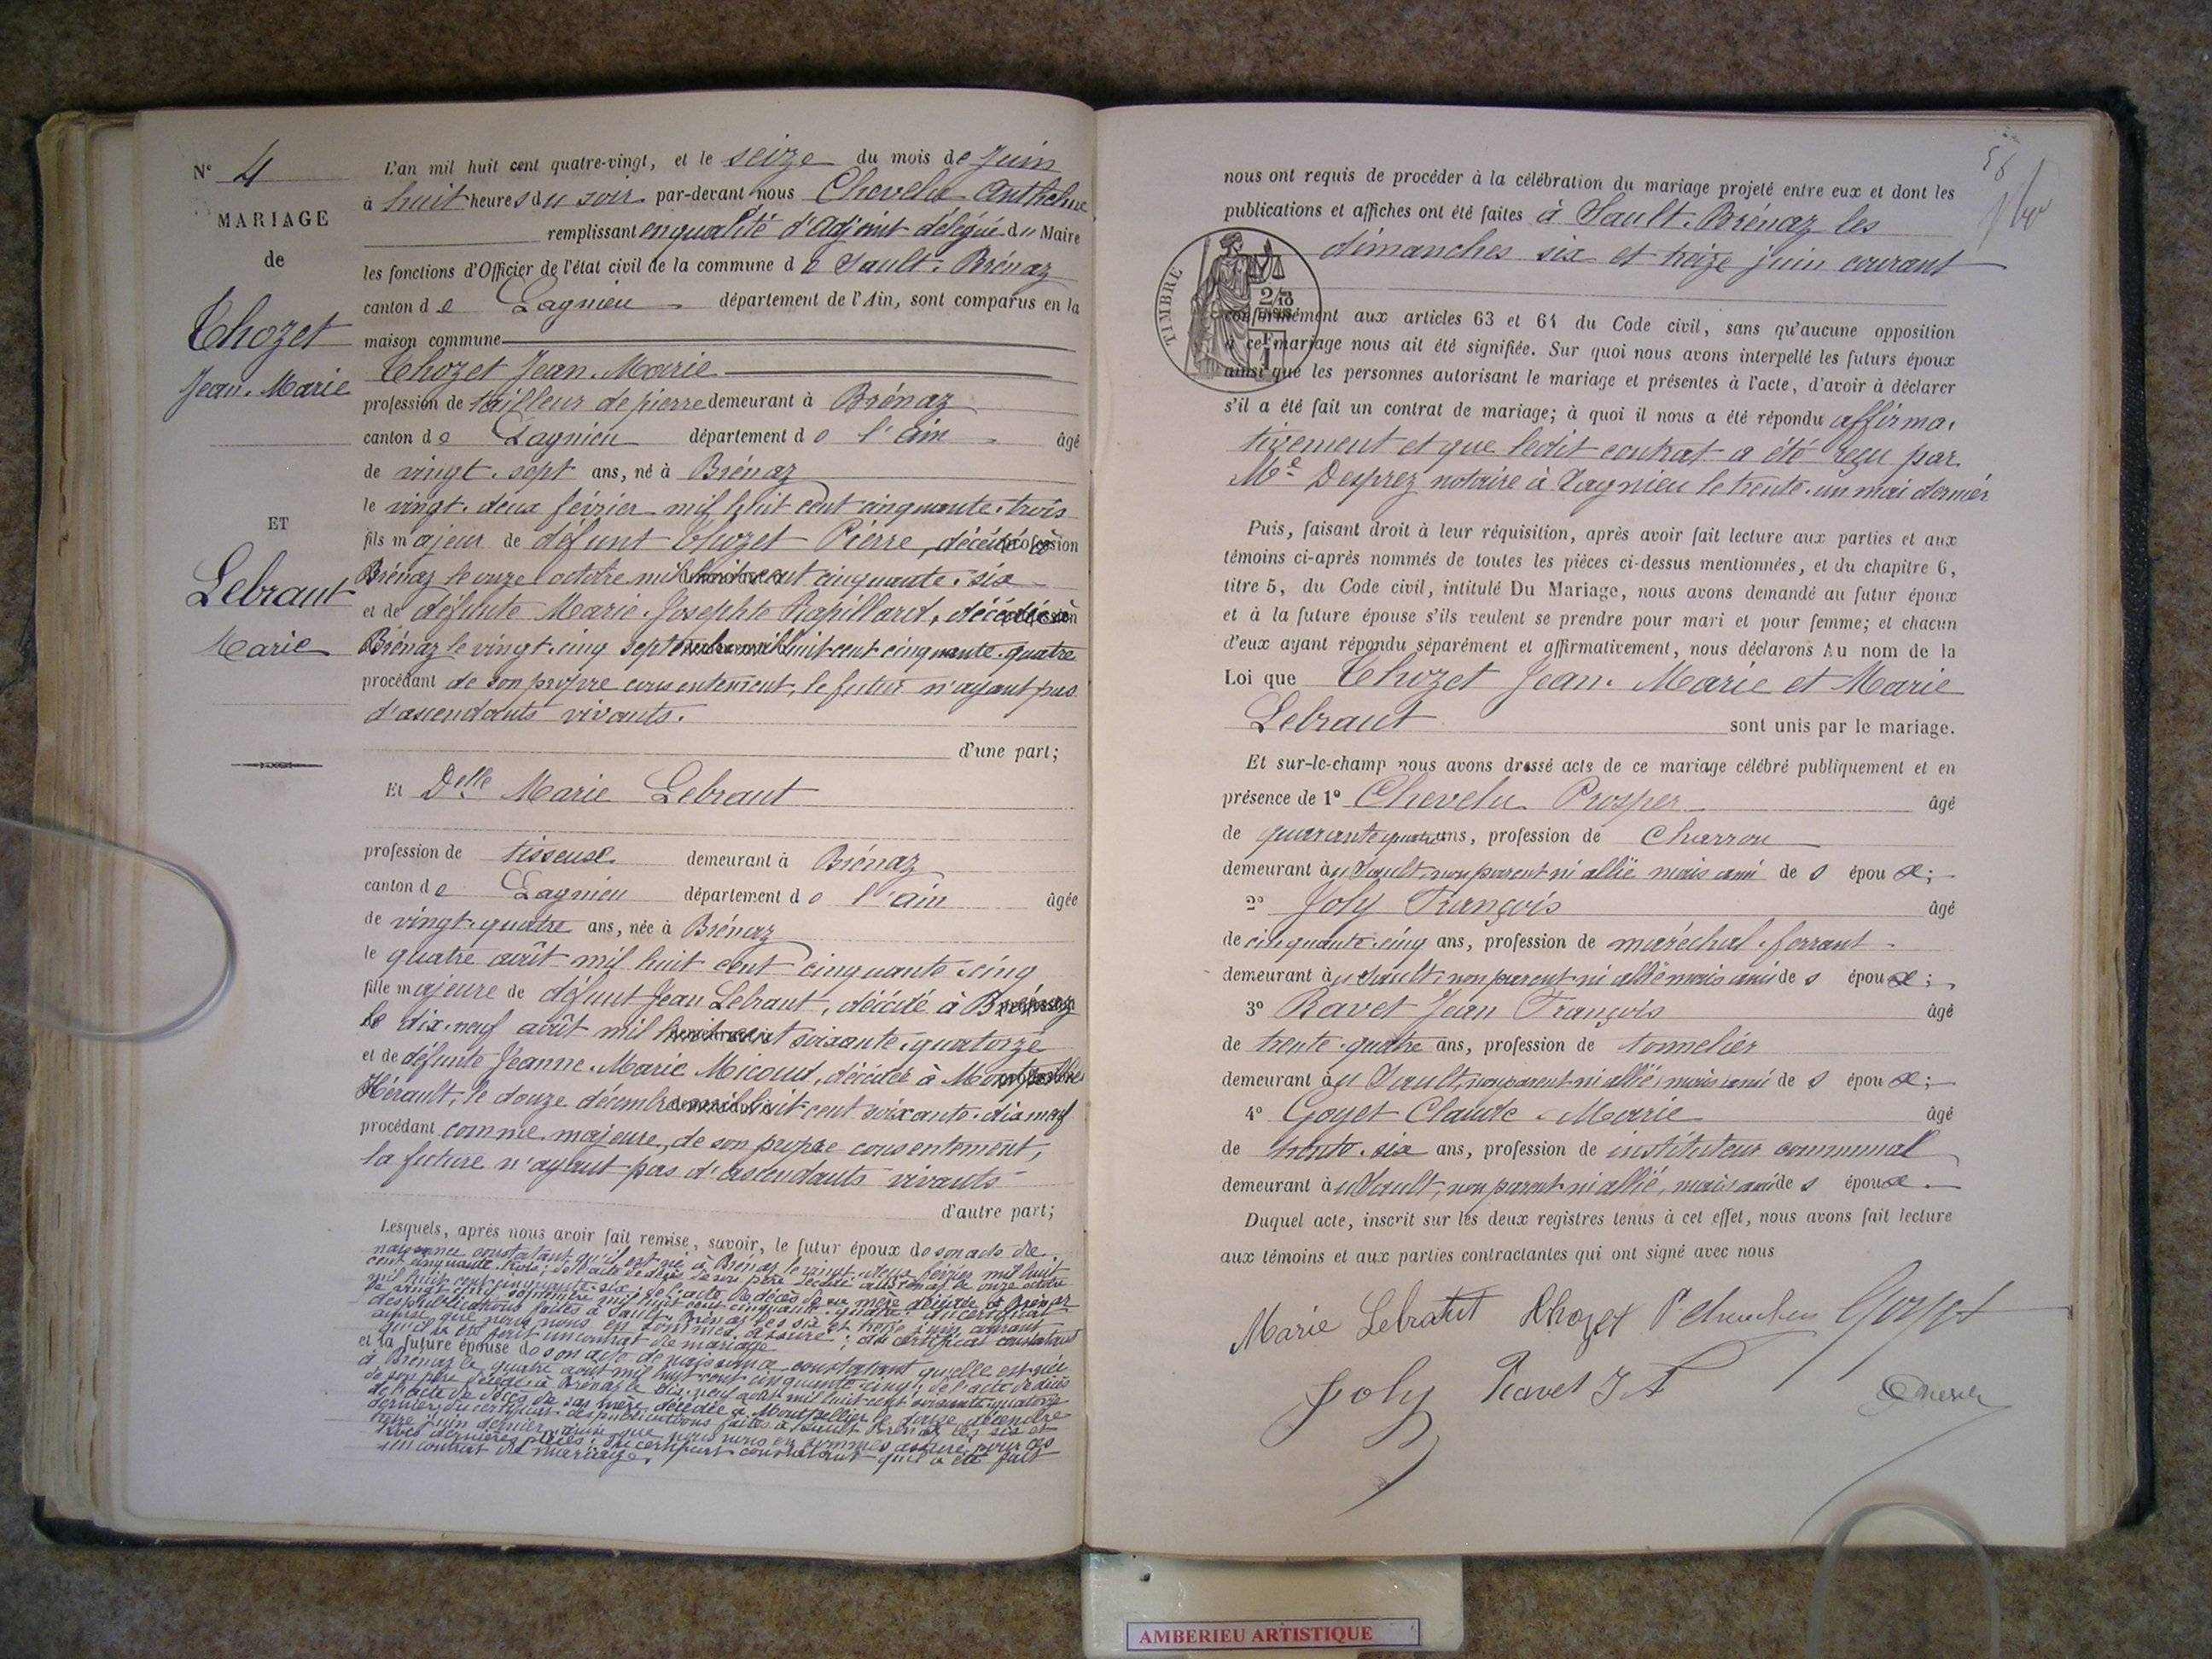 N° 4
MARIAGE
de
Thozet
Jean-Marie
ET
Lebraut
Marie
L'an mil huit cent quatre-vingt, et le seize du mois de juin
à huit heures du soir par-devant nous Chevelu Anthelme
remplissant en qualité d'adjoint délégué du Maire
les fonctions d'Officier de l'état civil de la commune de Sault-Brénaz
canton de Lagnieu département de l'Ain, sont comparus en la
maison commune
Thozet Jean-Marie
profession de tailleur de pierre demeurant à Brénaz
canton de Lagnieu département de l'ain âgé
de vingt-sept ans, né à Brénaz
le vingt-deux février mil huit cent cinquante-trois
fils majeur de défunt Thozet Pierre, décédé à profession
Brénaz le onze octobre mil huit cent cinquante-six
et de défunte Marie-Josephte Rapillard, décédée à
Brénaz le vingt-cinq septembre mil huit cent cinquante-quatre
procédant de son propre consentement, le futur n'ayant pas
d'ascendants vivants.
d'une part;
Et Delle Marie Lebraut
profession de tisseuse demeurant à Brénaz
canton de Lagnieu département de l'ain âgée
de vingt-quatre ans, née à Brénaz
le quatre août mil huit cent cinquante-cinq
fille majeure de défunt Jean Lebraut, décédé à Brénaz
le dix-neuf août mil huit cent soixante-quatorze
et de défunte Jeanne-Marie Micoud, décédée à Montpellier
Hérault, le douze décembre mil huit cent soixante-dix-neuf
procédant comme majeure, de son propre consentement,
la future n'ayant pas d'ascendants vivants
d'autre part;
Lesquels, après nous avoir fait remise, savoir, le futur époux de son acte de
naissance constatant qu'il est né à Brénaz le vingt-deux février mil huit
cent cinquante-trois; de l'acte de décès de son père décédé à Brénaz le onze octobre
mil huit cent cinquante-six; de l'acte de décès de sa mère décédée à Brénaz
le vingt-cinq septembre mil huit cent cinquante-quatre; du certificat
des publications faites à Sault-Brénaz les six et treize juin courant
ainsi que nous nous en sommes assuré; du certificat constatant
qu'il a été fait un contrat de mariage
et la future épouse de son acte de naissance constatant qu'elle est née
à Brénaz le quatre août mil huit cent cinquante-cinq; de l'acte de décès
de son père décédé à Brénaz le dix-neuf août mil huit cent soixante-quatorze
de l'acte de décès de sa mère décédée à Montpellier le douze décembre
dernier; du certificat des publications faites à Sault-Brénaz les six et
treize juin dernier, ainsi que nous nous en sommes assuré, pour ces
trois dernières pièces; du certificat constatant qu'il a été fait
un contrat de mariage,
58
nous ont requis de procéder à la célébration du mariage projeté entre eux et dont les
publications et affiches ont été faites à Sault-Brénaz les
dimanches six et treize juin courant
TIMBRE
2/10
conformément aux articles 63 et 64 du Code civil, sans qu'aucune opposition
à ce mariage nous ait été signifiée. Sur quoi nous avons interpellé les futurs époux
ainsi que les personnes autorisant le mariage et présentes à l'acte, d'avoir à déclarer
s'il a été fait un contrat de mariage; à quoi il nous a été répondu affirma-
tivement et que ledit contrat a été reçu par
Me Desprez notaire à Lagnieu le trente-un mai dernier
Puis, faisant droit à leur réquisition, après avoir fait lecture aux parties et aux
témoins ci-après nommés de toutes les pièces ci-dessus mentionnées, et du chapitre 6,
titre 5, du Code civil, intitulé Du Mariage, nous avons demandé au futur époux
et à la future épouse s'ils veulent se prendre pour mari et pour femme; et chacun
d'eux ayant répondu séparément et affirmativement, nous déclarons Au nom de la
Loi que Thozet Jean-Marie et Marie
Lebraut sont unis par le mariage.
Et sur-le-champ nous avons dressé acte de ce mariage célébré publiquement et en
présence de 1° Chevelu Prosper âgé
de quarante quatre ans, profession de Charron
demeurant au Sault, non parent ni allié mais ami des époux;
2° Joly François âgé
de cinquante-cinq ans, profession de maréchal-ferrant
demeurant au Sault, non parent ni allié mais ami des époux;
3° Ravet Jean François âgé
de trente-quatre ans, profession de tonnelier
demeurant au Sault, non parent ni allié, mais ami des époux;
4° Goyet Claude-Marie âgé
de trente-six ans, profession de instituteur communal
demeurant au Sault, non parent ni allié, mais ami des époux.
Duquel acte, inscrit sur les deux registres tenus à cet effet, nous avons fait lecture
aux témoins et aux parties contractantes qui ont signé avec nous
Marie Lebraut Thozet P Chevelu Goyet
Joly Ravet J F
AMBERIEU ARTISTIQUE